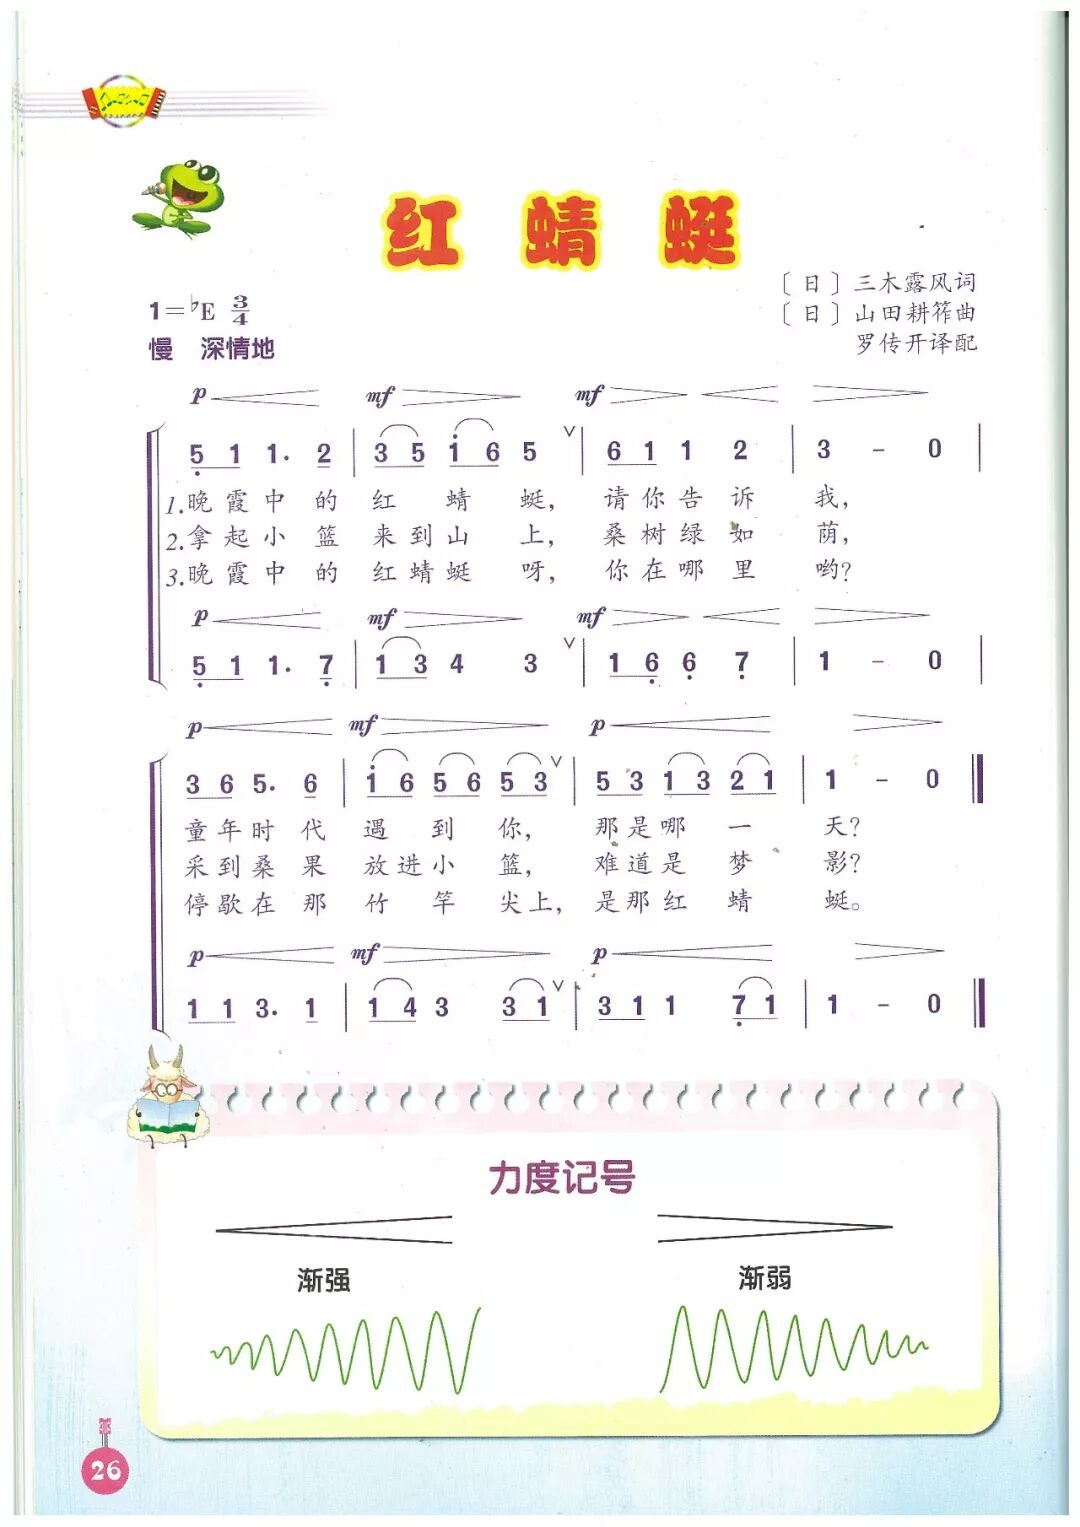 红蜻蜓
〔日〕三木露风词
1=♭E 3/4
〔日〕山田耕筰曲
慢 深情地
罗传开译配
p mf mf
5 1 1. 2 | 3 5 i 6 5 ∨ | 6 1 1 2 | 3 - 0 |
1.晚霞中的红蜻蜓,请你告诉我,
2.拿起小篮来到山上,桑树绿如荫,
3.晚霞中的红蜻蜓呀,你在哪里哟?
p mf mf
5 1 1. 7 | 1 3 4 3 ∨ | 1 6 6 7 | 1 - 0 |
p mf p
3 6 5. 6 | i 6 5 6 5 3 ∨ | 5 3 1 3 2 1 | 1 - 0 ‖
童年时代遇到你,那是哪一天?
采到桑果放进小篮,难道是梦影?
停歇在那竹竿尖上,是那红蜻蜓。
p mf p
1 1 3. 1 | 1 4 3 3 1 ∨ | 3 1 1 7 1 | 1 - 0 ‖
力度记号
渐强 渐弱
26